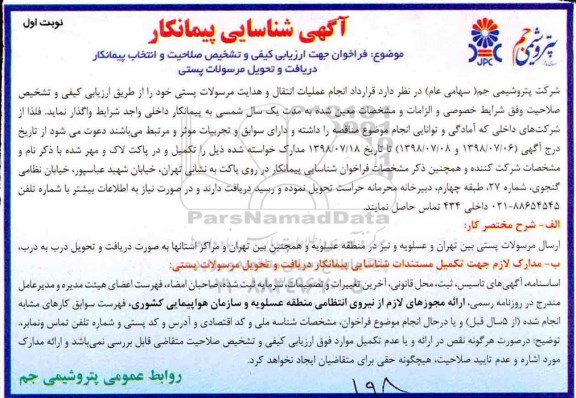 نوبت اول
آگهی شناسایی پیمانکار
پتروشیمی جم
JPC
موضوع: فراخوان جهت ارزیابی کیفی و تشخیص صلاحیت و انتخاب پیمانکار
دریافت و تحویل مرسولات پستی
شرکت پتروشیمی جم( سهامی عام) در نظر دارد قرارداد انجام عملیات انتقال و هدایت مرسولات پستی خود را از طریق ارزیابی کیفی و تشخیص
صلاحیت وفق شرایط خصوصی و الزامات و مشخصات معین شده به مدت یک سال شمسی به پیمانکار داخلی واجد شرایط واگذار نماید. فلذا از
شرکت‌های داخلی که آمادگی و توانایی انجام موضوع مناقصه را داشته و دارای سوابق و تجربیات موثر و مرتبط می‌باشند دعوت می شود از تاریخ
درج آگهی (۱۳۹۸/۰۷/۰۶ و ۱۳۹۸/۰۷/۰۸) تا تاریخ ۱۳۹۸/۰۷/۱۸ مدارک خواسته شده ذیل را تکمیل و در پاکت لاک و مهر شده با ذکر نام و
مشخصات شرکت کننده و همچنین ذکر مشخصات فراخوان شناسایی پیمانکار در روی پاکت به نشانی تهران، خیابان شهید عباسپور، خیابان نظامی
گنجوی، شماره ۲۷، طبقه چهارم، دبیرخانه محرمانه حراست تحویل نموده و رسید دریافت دارند و در صورت نیاز به اطلاعات بیشتر با شماره تلفن
۰۲۱-۸۸۶۵۴۵۴۵ داخلی ۴۳۴ تماس حاصل نمایند.
ParsNamadData
الف- شرح مختصر کار:
ارسال مرسولات پستی بین تهران و عسلویه و نیز در منطقه عسلویه و همچنین بین تهران و مراکز استانها به صورت دریافت و تحویل درب به درب.
ب- مدارک لازم جهت تکمیل مستندات شناسایی پیمانکار دریافت و تحویل مرسولات پستی:
اساسنامه، آگهی‌های تاسیس، ثبت، محل قانونی، آخرین تغییرات و تصمیمات، سرمایه ثبت شده، صاحبان امضاء، فهرست اعضای هیئت مدیره و مدیرعامل
مندرج در روزنامه رسمی، ارائه مجوزهای لازم از نیروی انتظامی منطقه عسلویه و سازمان هواپیمایی کشوری، فهرست سوابق کارهای مشابه
انجام شده (از ۵سال قبل) و یا درحال انجام موضوع فراخوان، مشخصات شناسه ملی و کد اقتصادی و آدرس و کد پستی و شماره تلفن تماس ونمابر.
توضیح: درصورت هرگونه نقص در ارائه و یا عدم تکمیل موارد فوق ارزیابی کیفی و تشخیص صلاحیت متقاضی قابل بررسی نمی‌باشد و ارائه مدارک
مورد اشاره و عدم تایید صلاحیت، هیچگونه حقی برای متقاضیان ایجاد نخواهد کرد.
روابط عمومی پتروشیمی جم
۱۹۸